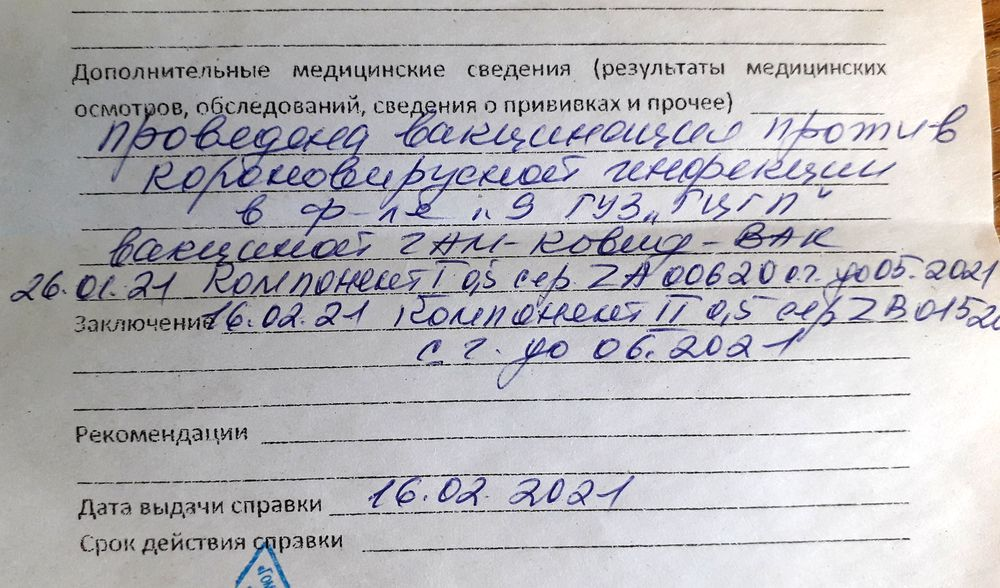 Дополнительные медицинские сведения (результаты медицинских
осмотров, обследований, сведения о прививках и прочее)
Проведена вакцинация против
короновирусной инфекции
в ф-ле №9 ГУЗ „ГЦГП“
вакциной ГАМ-Ковид-ВАК
26.01.21 Компонент I 0,5 сер. ZA00620 с.г. до 05.2021
Заключение 16.02.21 Компонент II 0,5 сер ZB01520
с г. до 06.2021
Рекомендации
Дата выдачи справки 16.02.2021
Срок действия справки